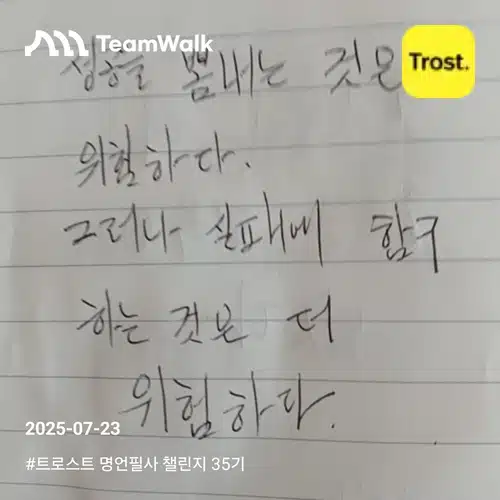 TeamWalk
Trost.
성공을 뽐내는 것은
위험하다.
그러나 실패에 함구
하는 것은 더
위험하다.
2025-07-23
#트로스트 명언필사 챌린지 35기